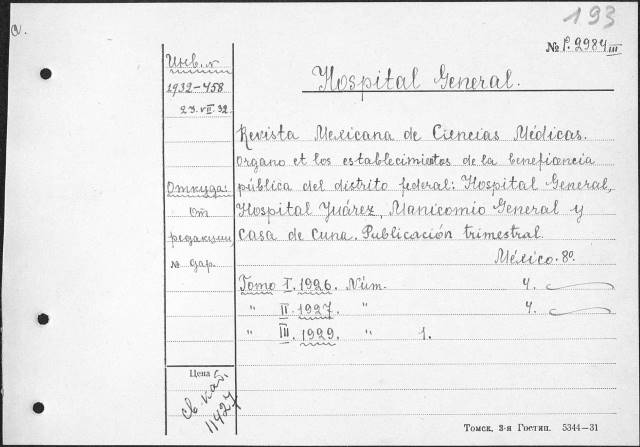 193
№ P. 2984 III
Hospital General.
Инв. №
1932–458
23.VII.32.
Откуда:
От
редакции
№ дар.
Revista Mexicana de Ciencias Médicas.
Organo et los establecimientos de la beneficencia
pública del distrito federal: Hospital General,
Hospital Juárez, Manicomio General y
Casa de Cuna. Publicación trimestral.
México. 8º.
Tomo I. 1926. Núm. 4.
" II. 1927. " 4.
" III. 1929. " 1.
Цена
св. кат.
11427
Томск, 3-я Гостип. 5344—31